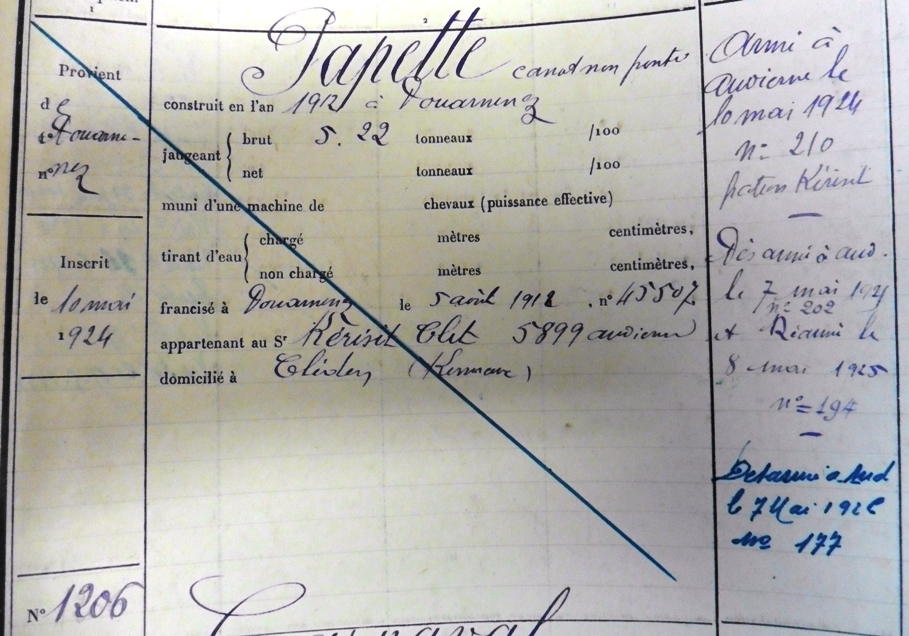 1
2
Papette canot non ponté
Provient
de
de Douarne-
n° nez
construit en l'an 191 à Douarnenez
jaugeant brut 5. 22 tonneaux /100
net tonneaux /100
muni d'une machine de chevaux (puissance effective)
tirant d'eau chargé mètres centimètres,
non chargé mètres centimètres,
Inscrit
le 10 mai
1924
francisé à Douarnenez le 5 août 1912 , n° 45507
appartenant au Sr Kérisit Clet 5899 audierne
domicilié à Cléden
Armé à
audierne le
10 mai 1924
n° 210
patron Kérisit
Désarmé à aud.
le 7 mai 192
n° 202
et Réarmé le
8 mai 1925
n° = 194
Desarmé a Aud
le 7 Mai 192
n° 177
N° 1206